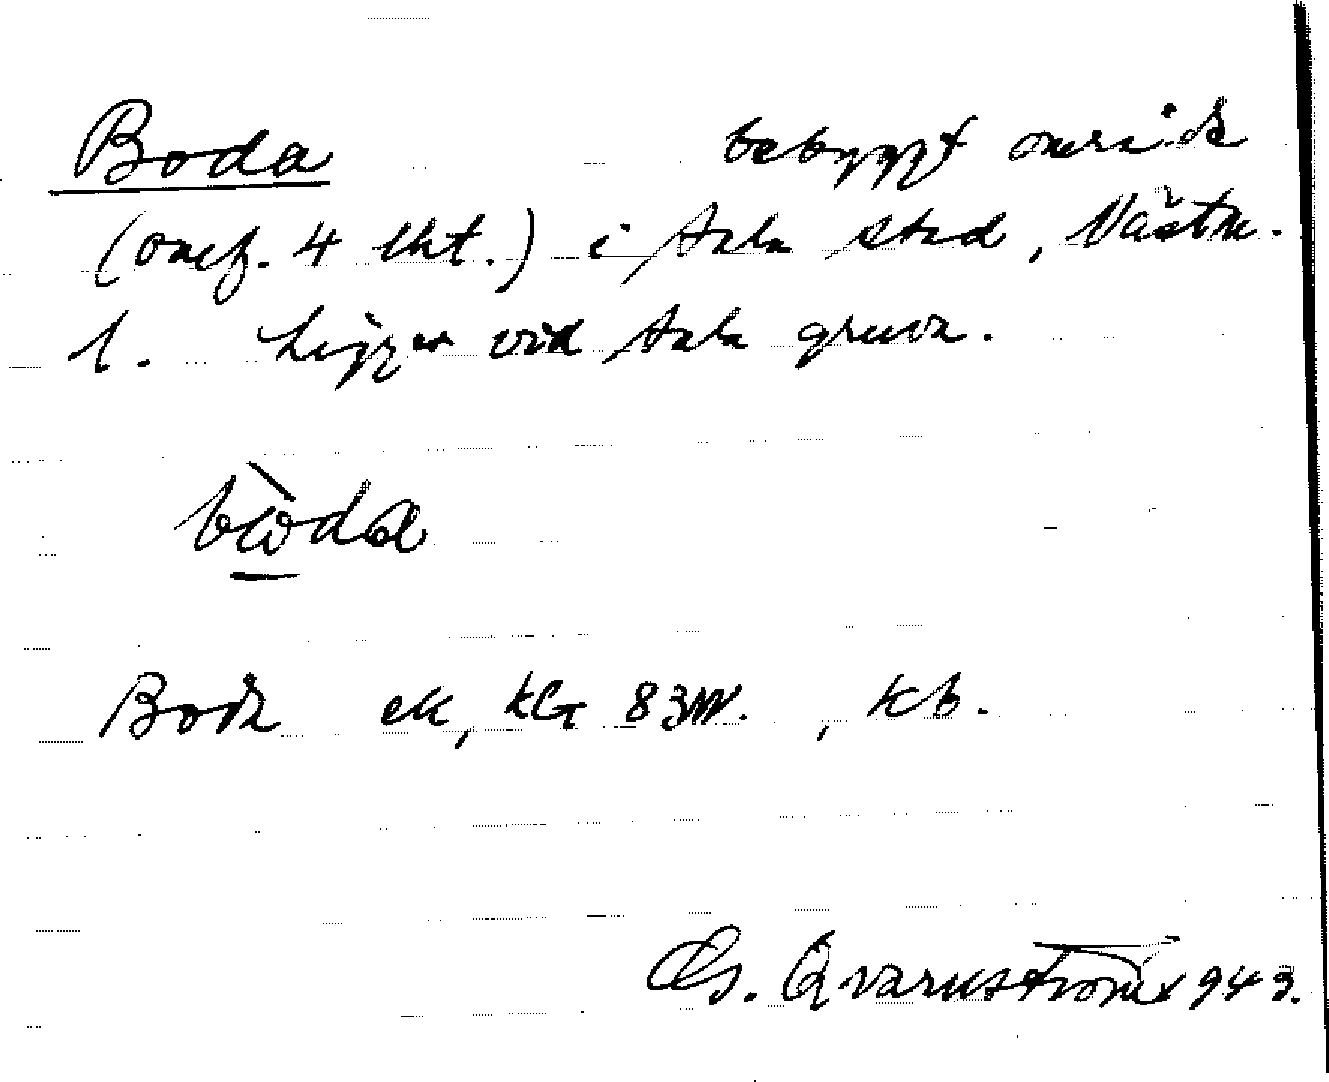 Boda bebyggt område
(omf. 4 lht.) i Sala stad, Västm.
l. Ligger vid Sala gruva.
Boda ek, kG 83 , kb.
G. Qvarnström 1943.